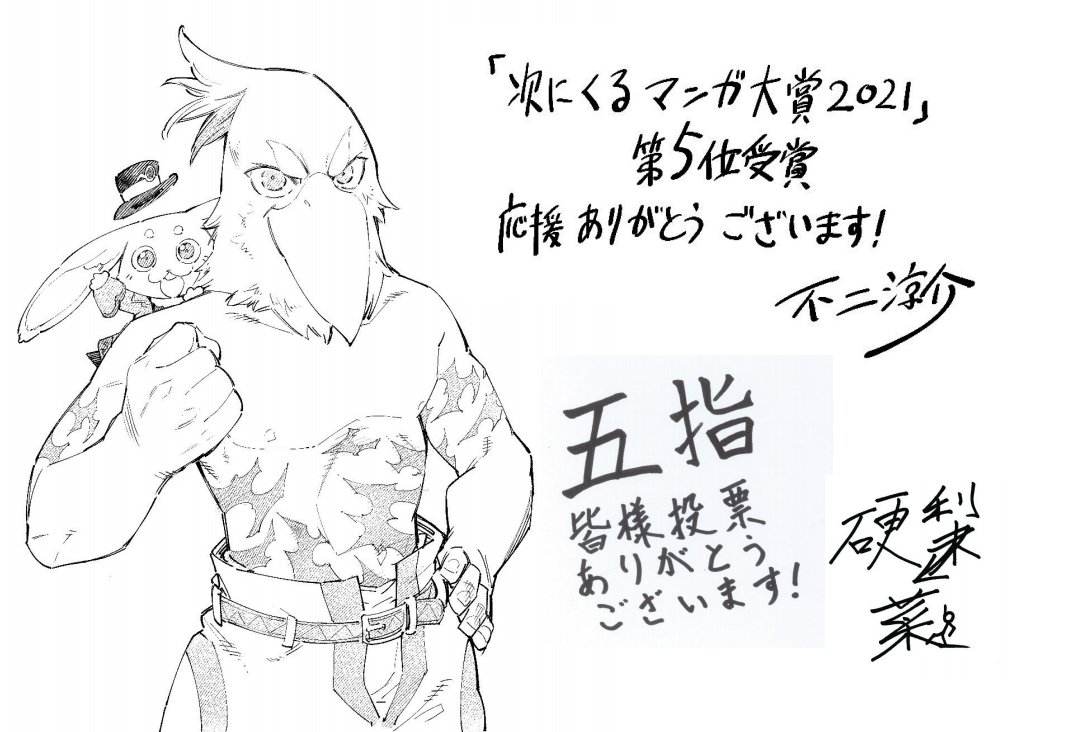 「次にくるマンガ大賞2021」
第5位受賞
応援ありがとうございます!
不二涼介
五指
皆様投票
ありがとう
ございます!
硬梨菜